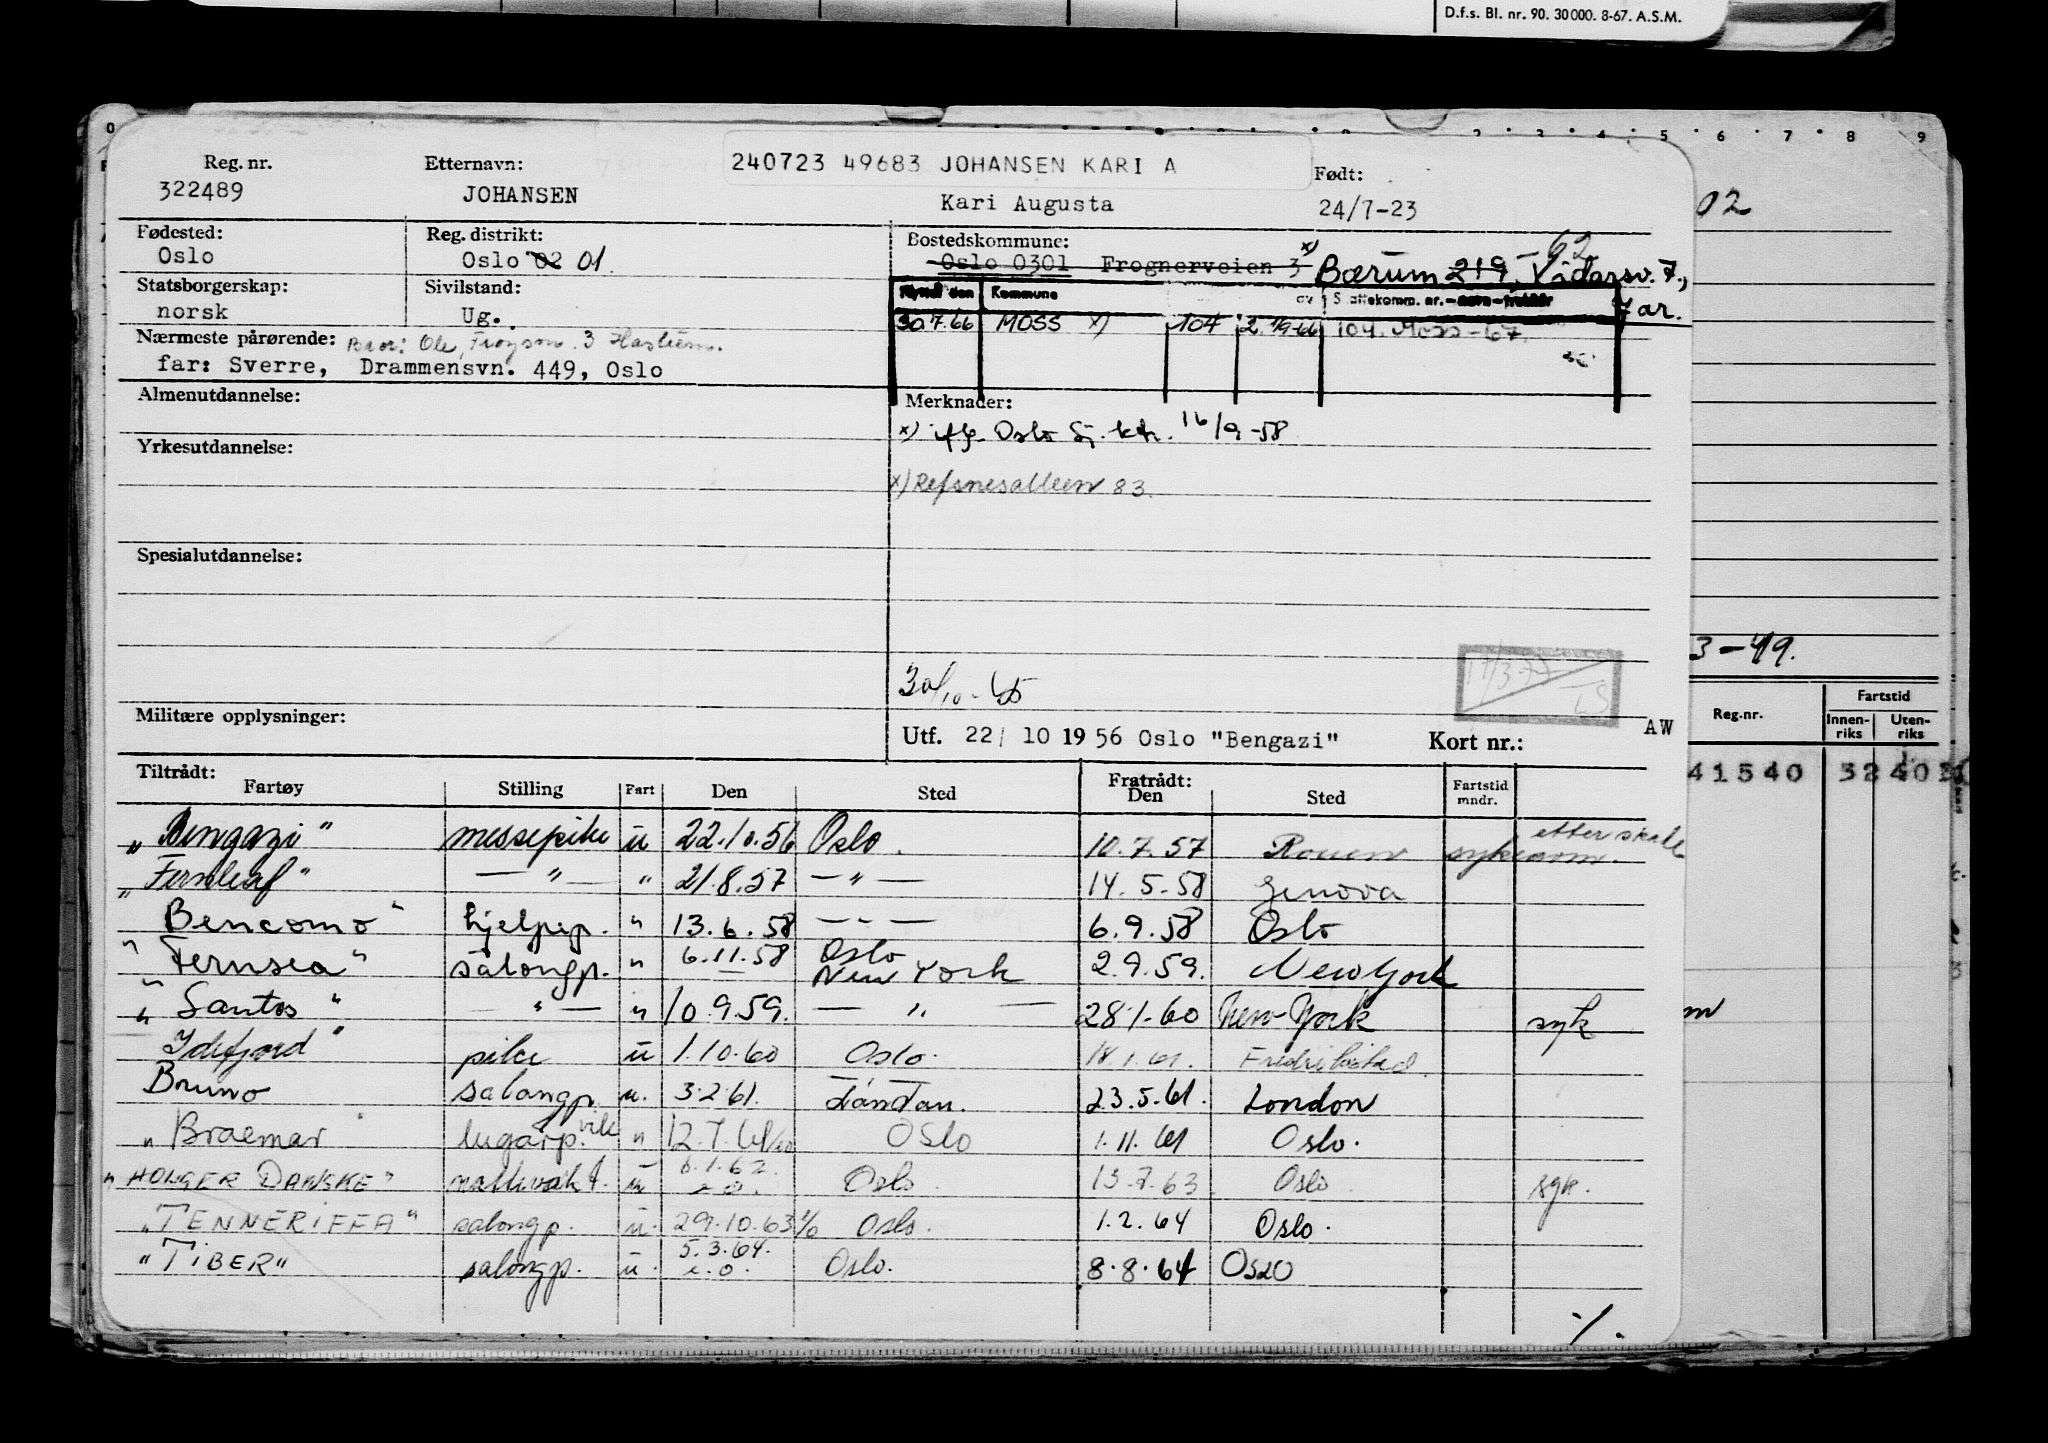 D.f.s. Bl. nr. 90. 30000. 8-67. A.S.M.
5 6 7 8 9
Reg. nr. Etternavn: 240723 49683 JOHANSEN KARI A Født:
322489 JOHANSEN Kari Augusta 24/7-23
02
Fødested: Reg. distrikt: Bostedskommune: x) -62
Oslo Oslo 02 01. Oslo 0301 Frognerveien 3 Bærum 219, Vidarsv. 7.,
Jar.
Statsborgerskap: Sivilstand: Flyttet den Kommune av Skattekomm. nr.
norsk Ug. 30.7.66 MOSS x) 104 2. /9-66 104. Moss-67.
Nærmeste pårørende: Bror: Ole, 3
far: Sverre, Drammensvn. 449, Oslo
Almenutdannelse: Merknader:
x) iflg. Oslo Sj. ktr. 16/9-58
Yrkesutdannelse:
x) Refsnesalleen 83.
Spesialutdannelse:
3-49.
30/10-65
17/3-77 LS
Militære opplysninger: Utf. 22/ 10 1956 Oslo "Bengazi" Kort nr.: AW
Reg.nr. Fartstid
Innen-riks Uten-riks
41540 32 40
Tiltrådt: Fratrådt:
Fartøy Stilling Fart Den Sted Den Sted Fartstid mndr.
"Bengazi" messepike u 22.10.56 Oslo. 10.7.57 Rouen etter skade
"Fernleaf" — " — " 21.8.57 — " — 14.5.58 Genova
Bencomo" hjelpep. " 13.6.58 — " — 6.9.58 Oslo
"Fernsea" salongp. " 6.11.58 Oslo New York 2.9.59. New York
"Santos" — " — " 10.9.59. — " — 28.1.60 New-York syk
Idefjord" pike u 1.10.60 Oslo. 18.1.61. Fredrikstad.
Bruno salongp. u. 3.2.61. London. 23.5.61. London
"Braemar" lugarp. " 12.7.61 Oslo 1.11.61 Oslo.
"HOLGER DANSKE" nattevakt. u 6.1.62. Oslo 13.7.63 Oslo syk.
"TENNERIFFA" salongp. u. 29.10.63 Oslo. 1.2.64 Oslo.
"TIBER" salongp. u. 5.3.64. Oslo. 8.8.64 OSLO
./.